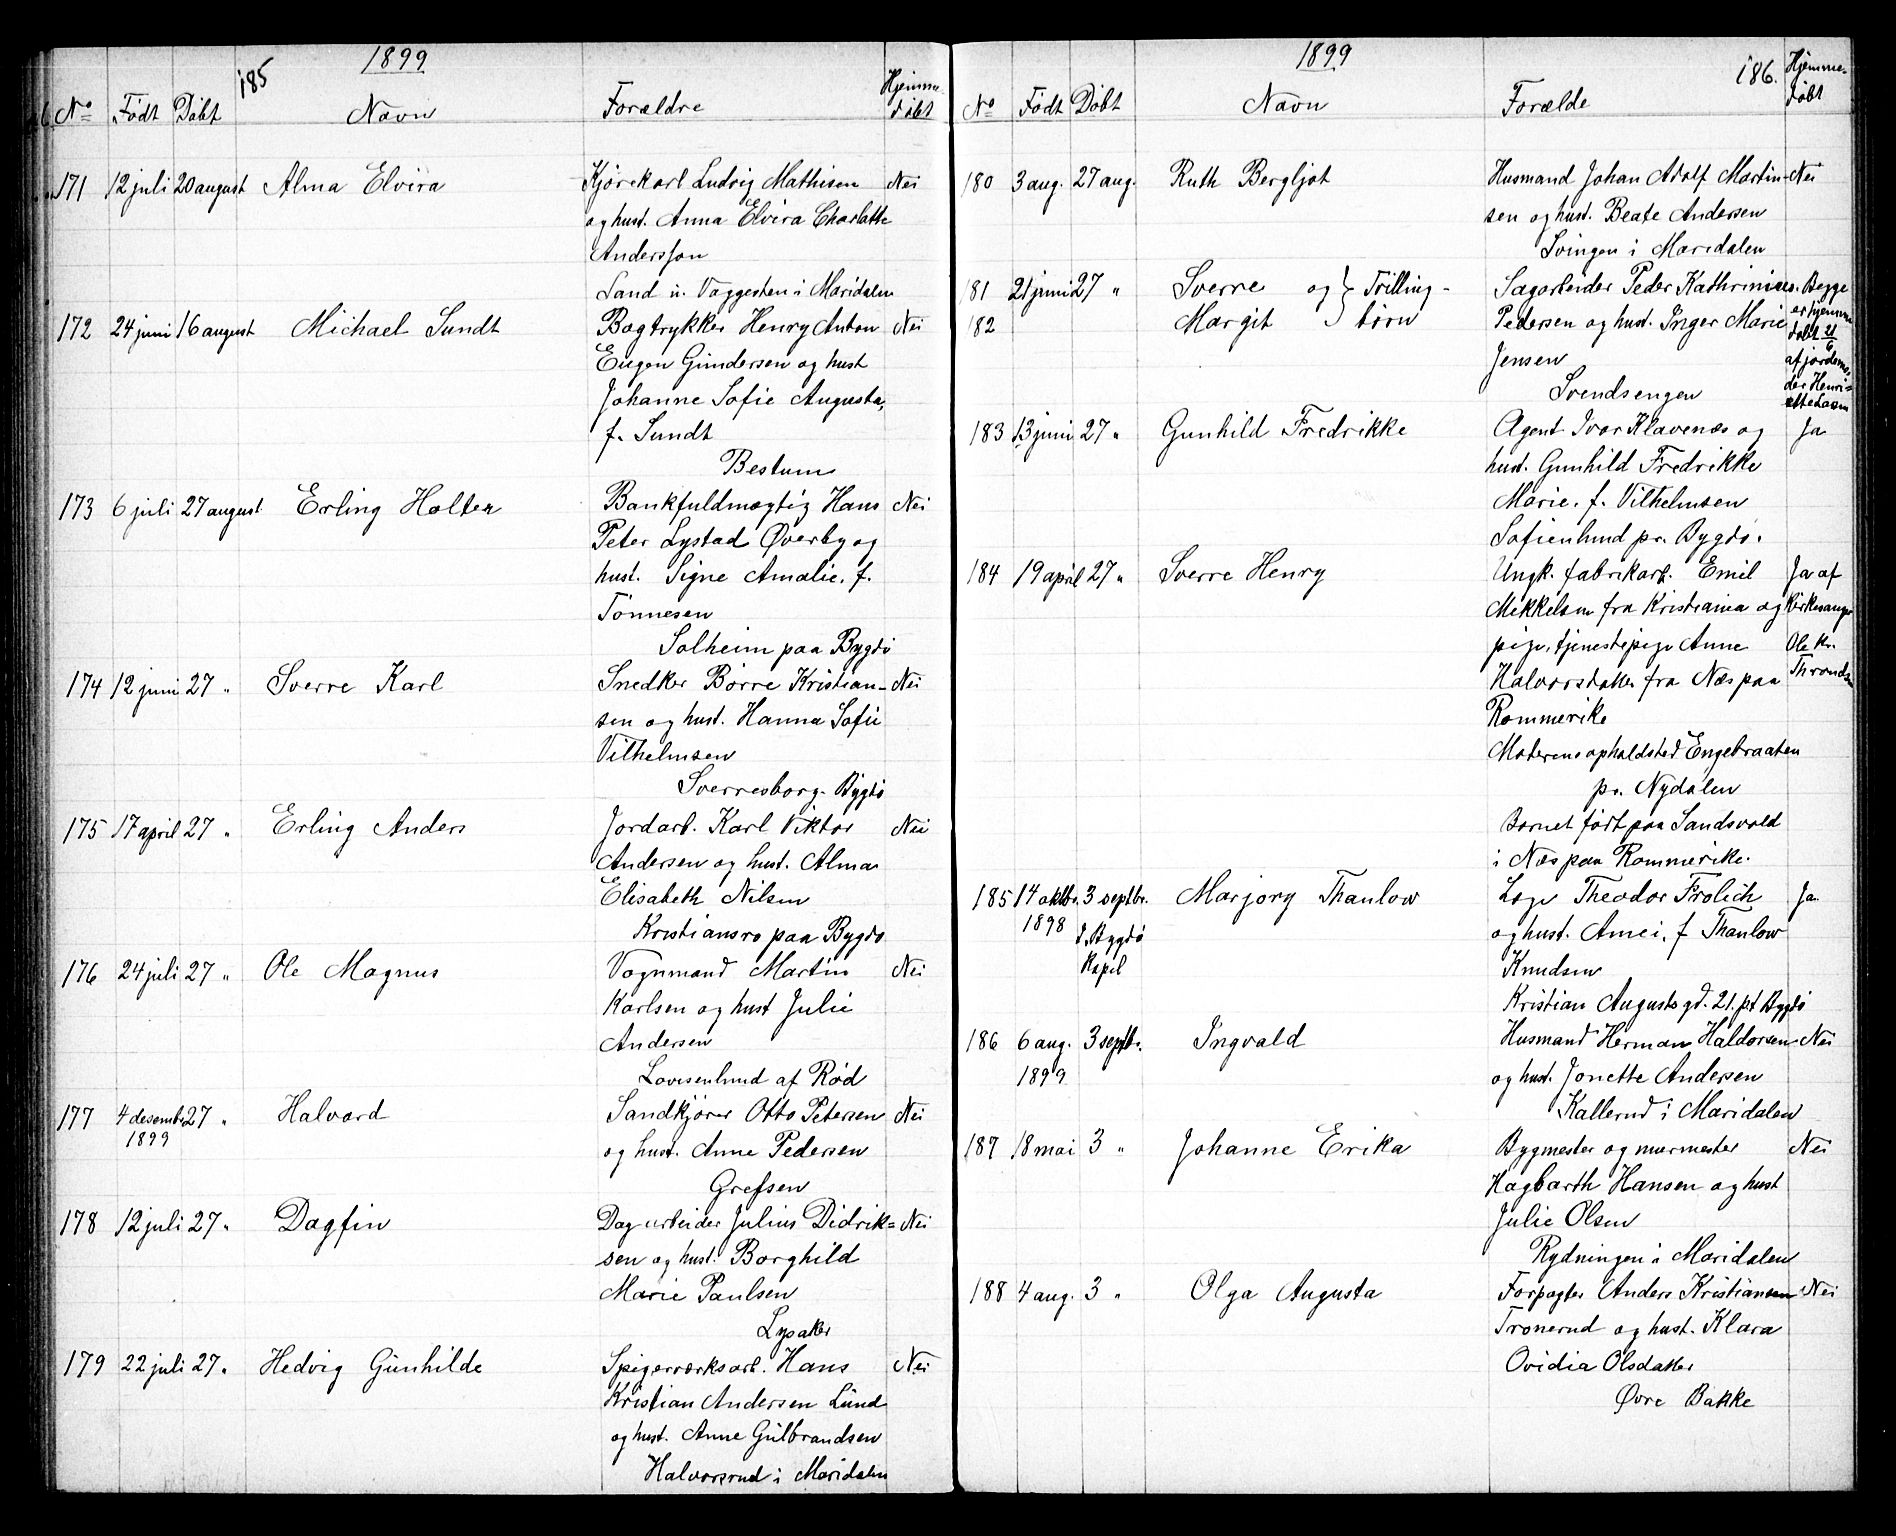 185
1899
No Født Døbt Navn Forældre Hjemme-
døbt
171 12 juli 20 august Alma Elvira Kjørekarl Ludvig Mathisen Nei
og hust. Anna Elvira Charlotte
Andersson
Sand u. Vaggesten i Maridalen
172 24 juni 16 august Michael Sundt Bogtrykker Henry Anton Nei
Eugen Gundersen og hust
Johanne Sofie Augusta,
f. Sundt
Bestum
173 6 juli 27 august Erling Holter Bankfuldmægtig Hans Nei
Peter Lystad Øverby og
hust. Signe Amalie, f.
Tønnesen
Solheim paa Bygdø
174 12 juni 27 " Sverre Karl Snedker Børre Kristian- Nei
sen og hust. Hanna Sofie
Vilhelmsen
Sverresborg. Bygdø
175 17 april 27 " Erling Anders Jordarb. Karl Viktor Nei
Andersen og hust. Alma
Elisabeth Nilsen
Kristiansro paa Bygdø
176 24 juli 27 " Ole Magnus Vognmand Martin Nei
Karlsen og hust Julie
Andersen
Lovisenlund af Rød
177 4 desember 27 " Halvard Sandkjører Otto Petersen Nei
1899 og hust. Anne Pedersen
Grefsen
178 12 juli 27 " Dagfin Dagarbeider Julius Didrik= Nei
sen og hust. Borghild
Marie Paulsen
Lysaker
179 22 juli 27 " Hedvig Gunhilde Spigerværksarb. Hans Nei
Kristian Andersen Lund
og hust. Anne Gulbrandsen
Halvorsrud i Maridalen
1899
186.
No Født Døbt Navn Forælde Hjemme-
døbt
180 3 aug. 27 aug. Ruth Bergljot Husmand Johan Adolf Martin- Nei
sen og hust. Beate Andersen
Svingen i Maridalen
181 21 juni 27 " Sverre og } Trilling- Sagarbeider Peder Kathrinius Begge
182 Margit } børn Pedersen og hust. Inger Marie er hjemme
døbt 21/6
Jensen af jordemo-
Svendsengen der Henri-
ette
183 13 juni 27 " Gunhild Fredrikke Agent Ivar Klavenæs og Ja
hust. Gunhild Fredrikke
Marie, f. Vilhelmsen
Sofienlund pr. Bygdø.
184 19 april 27 " Sverre Henry Ungk. fabrikarb. Emil Ja af
Mikkelsen fra Kristiania og Kirkesanger
pige, tjenestepige Anne Ole Kr.
Halvorsdatter fra Næs paa Throndsen
Rommerike
Moderens opholdsted Engebraaten
pr. Nydalen
Barnet født paa Sandsvold
i Næs paa Rommerike.
185 14 oktbr. 3 septbr. Marjory Thaulow Læge Theodor Frølich Ja
1898 i Bygdø og hust. Amei, f Thaulow
Kapel Knudsen
Kristian Augusts gd. 21. pt Bygdø
186 6 aug. 3 septbr. Ingvald Husmand Herman Haldorsen Nei
1899 og hust. Jonette Andersen
Kallerud i Maridalen
187 18 mai 3 " Johanne Erika Bygmester og murmester Nei
Hagbarth Hansen og hust
Julie Olsen
Rydningen i Maridalen
188 4 aug. 3 " Olga Augusta Forpagter Anders Kristiansen Nei
Tronerud og hust. Klara
Ovidia Olsdatter
Øvre Bakke